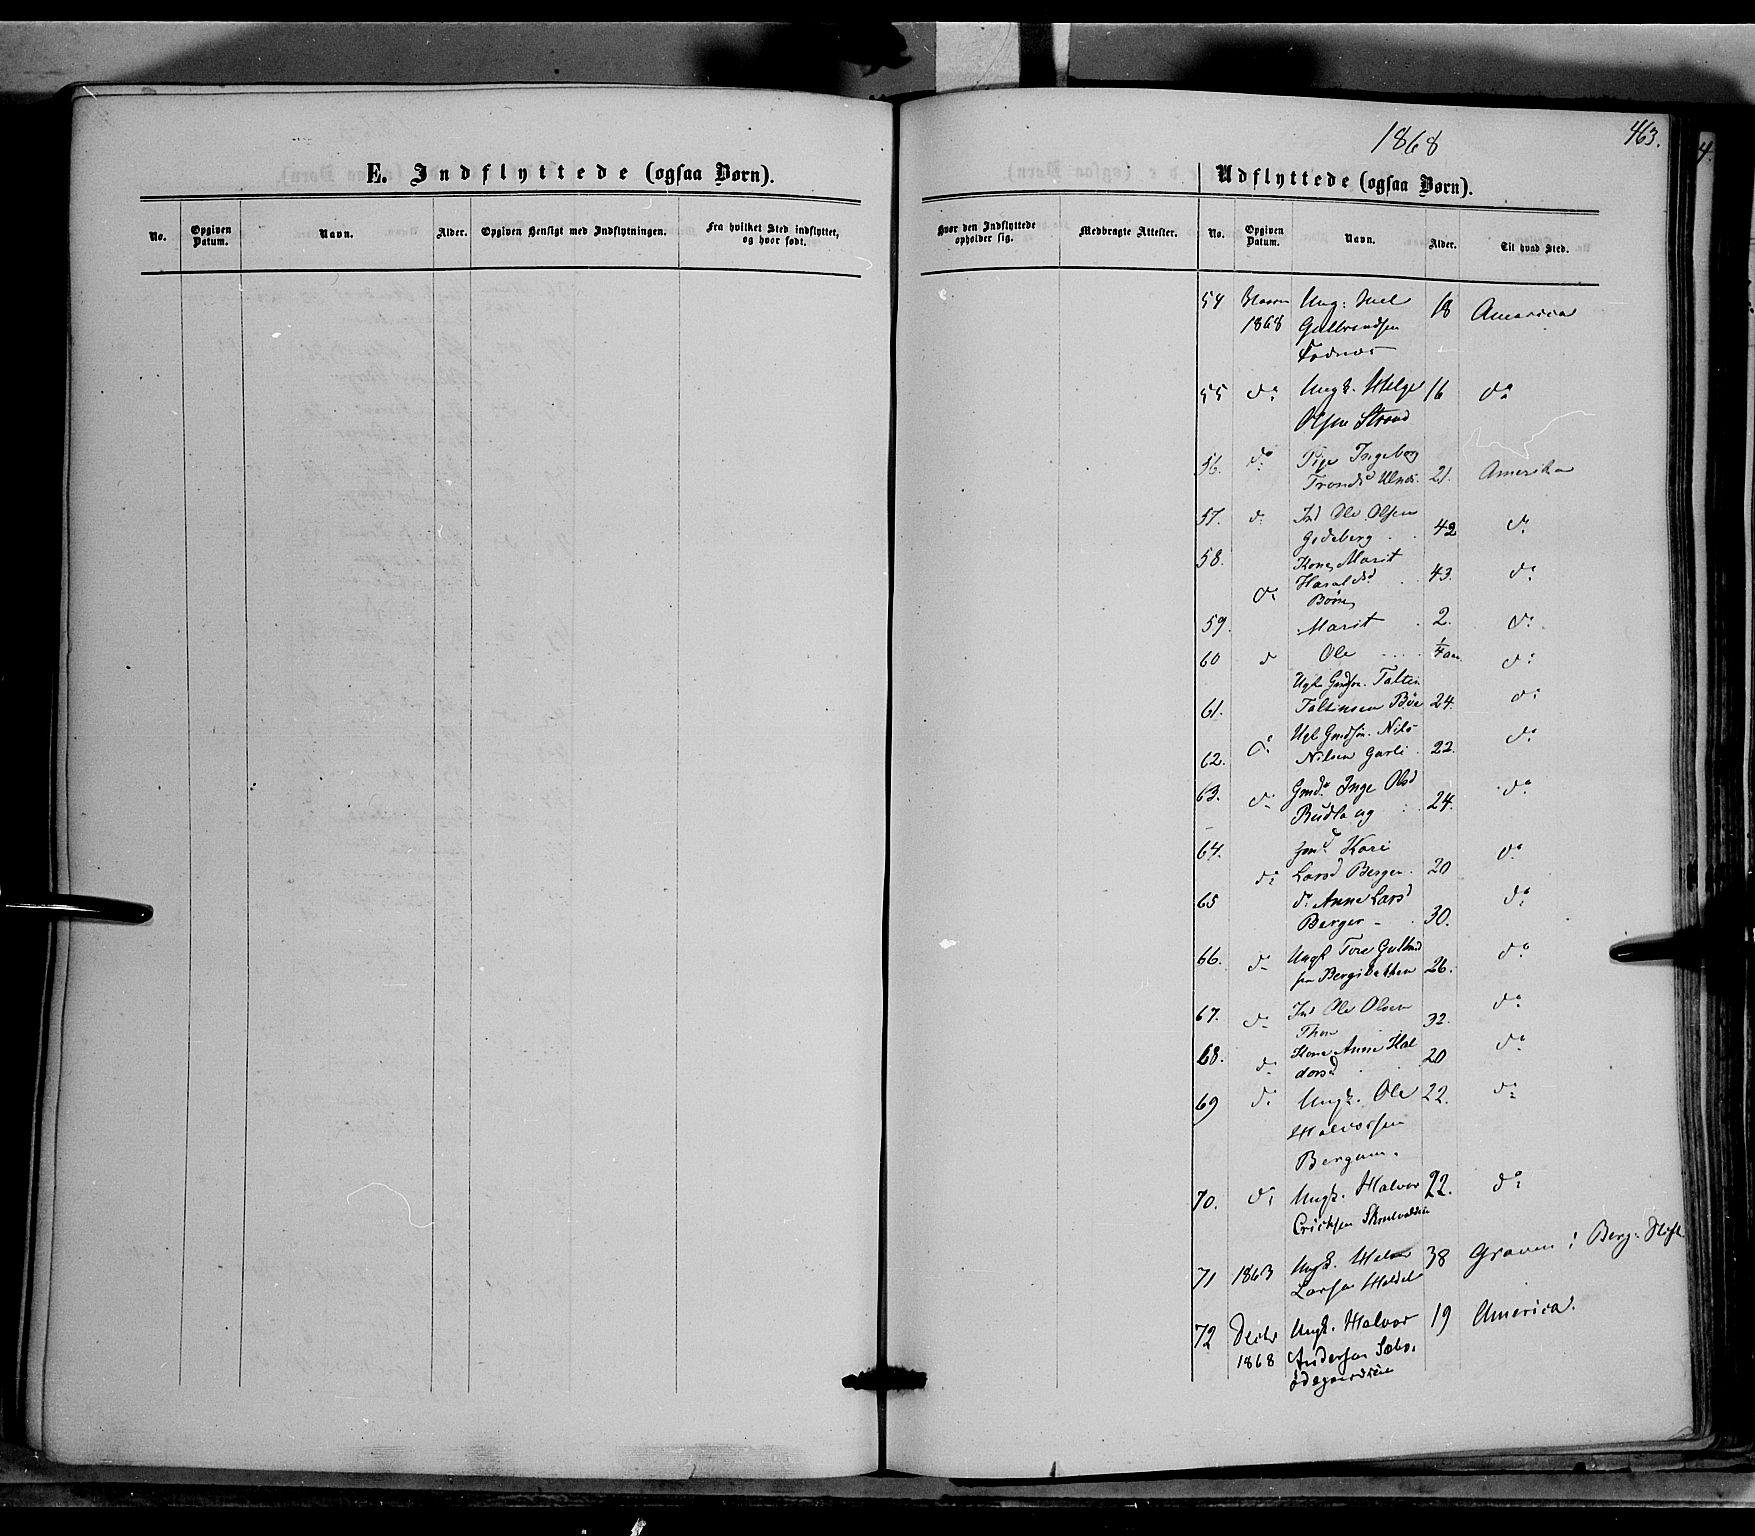 1868
463.
E. Indflyttede (ogsaa Børn).
Udflyttede (ogsaa Børn).
No. Opgiven Datum. Navn. Alder. Opgiven Hensigt med Indflytningen. Fra hvilket Sted indflyttet, og hvor født.
Hvor den Indflyttede opholder sig. Medbragte Attester. No. Opgiven Datum. Navn. Alder. Til hvad Sted.
54 Ung: Juel 18 America
1868 Gulbrandsen
55 do Ungk. Helge 16 do
Olsen Strand
56. do Pige Ingeborg
Tronds Ulnes. 21. Amerika
57. do Ind Ole Olsen
Godeberg . . 42 do
58. Kone Marit
do Haralds . . 43. do
Børn
59. Marit . 2. do
60 d Ole . . . . 1/4 aar do
Ugk Gmdsøn. Tolten
61. Toltensen Bøe 24. do
Ugk Gmdsøn. Nils
62. do Nilsen Garli . 22. do
63. do Gmd. Inge Olsd
Budlaug . . 24. do
64. Gmd Kari
do Larsd Berger . 20 do
65 do Anne Larsd
Berger - . 30. do
66. do Ungk Tore Gulbrand
sen Bergibakken 26. do
67. do Ind Ole Olsen
Thon 32. do
68. Kone Anne Hal 20 do
do dorsd
69 do Ungk. Ole 22. do
Halvorsen
Bergum.
70. do Ungk. Halvor 22. do
Erichsen
71 1863 Ungk. 38 Graven i Berg. Stift
Larsen
72 Decbr Ungk. Halvor 19 America.
1868 Andersen Sæbo.
ødegaardseie